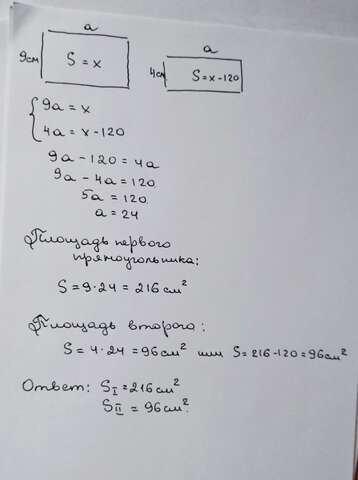 a
9см
S = x
a
4см
S = x - 120
9a = x
4a = x - 120
9a - 120 = 4a
9a - 4a = 120
5a = 120
a = 24
Площадь первого
прямоугольника:
S = 9·24 = 216 см²
Площадь второго:
S = 4·24 = 96 см² или S = 216 - 120 = 96 см²
Ответ: S_I = 216 см²
S_II = 96 см².